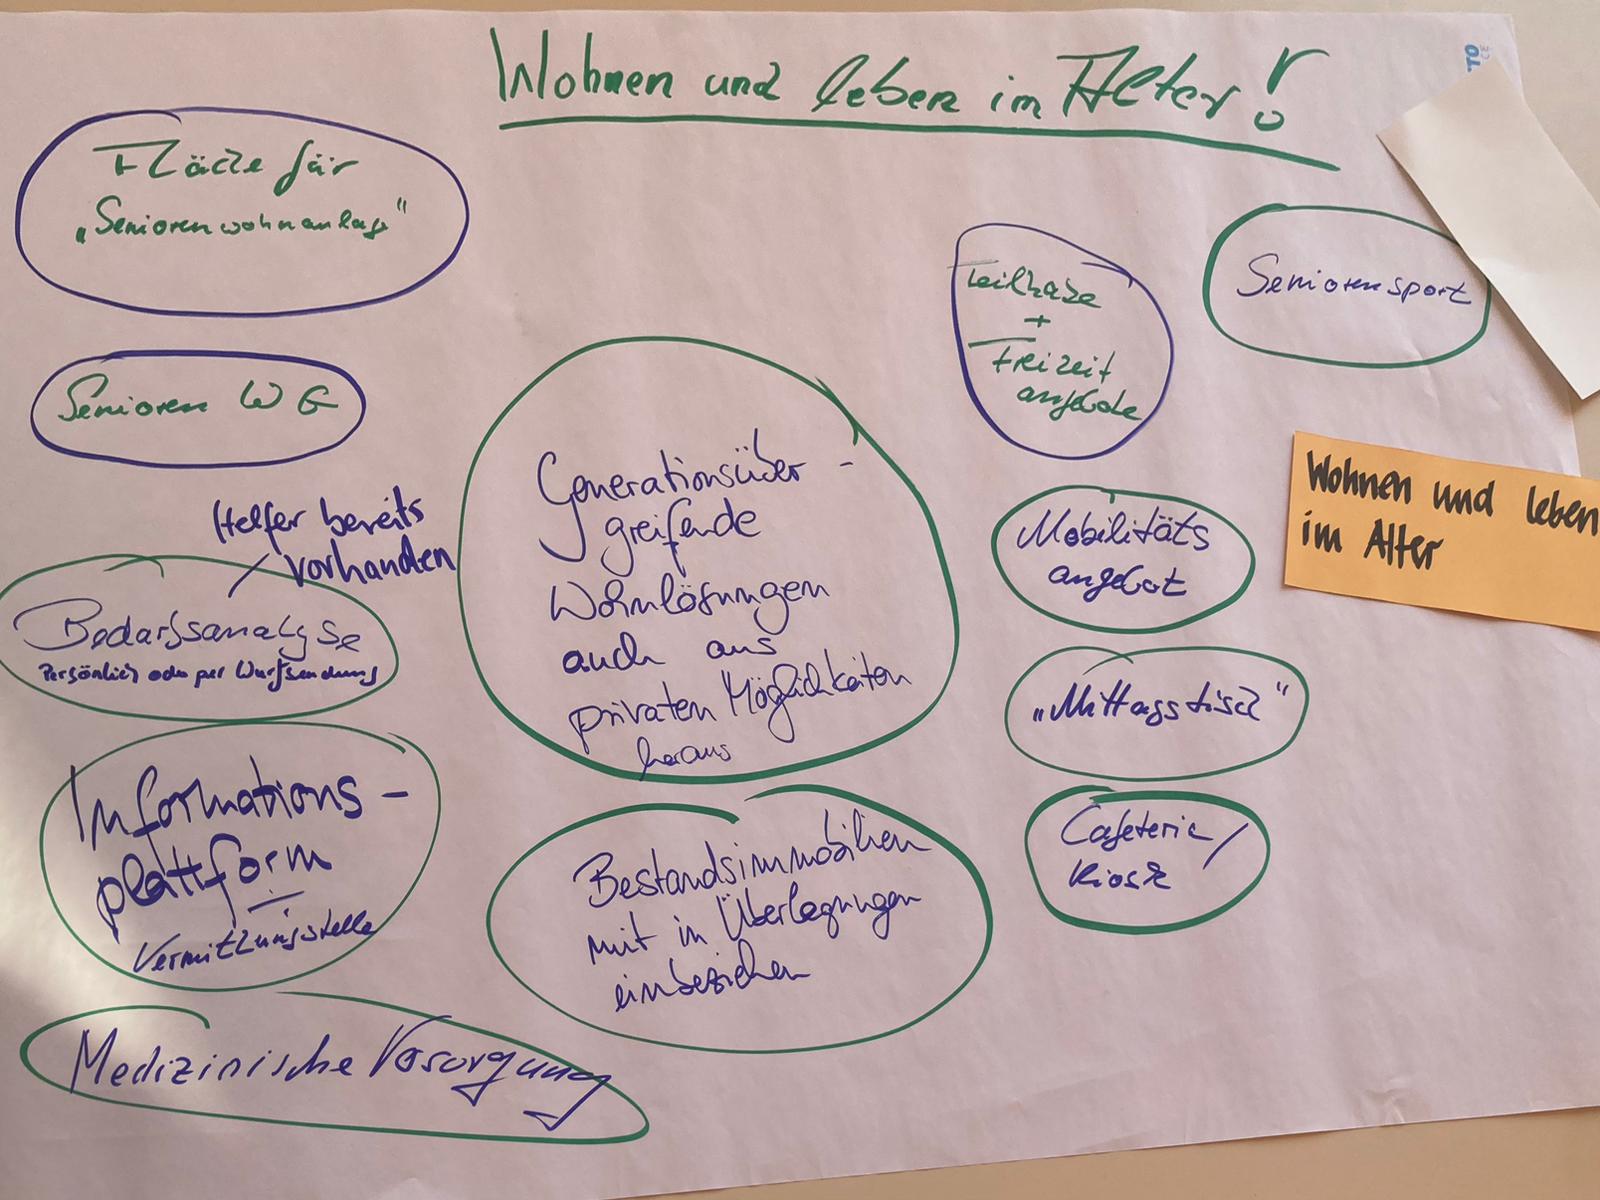 Wohnen und leben im Alter!
Fläche für
„Seniorenwohnanlage"
Senioren WG
Helfer bereits
vorhanden
Bedarfsanalyse
Persönlich oder per Wurfsendung
Informations-
plattform
Vermittlungsstelle
Medizinische Versorgung
Generationsüber-
greifende
Wohnlösungen
auch aus
privaten Möglichkeiten
heraus
Bestandsimmobilien
mit in Überlegungen
einbeziehen
Teilhabe
+
Freizeit
angebote
Seniorensport
Mobilitäts
angebot
„Mittagstisch"
Cafeteria/
Kiosk
Wohnen und leben
im Alter